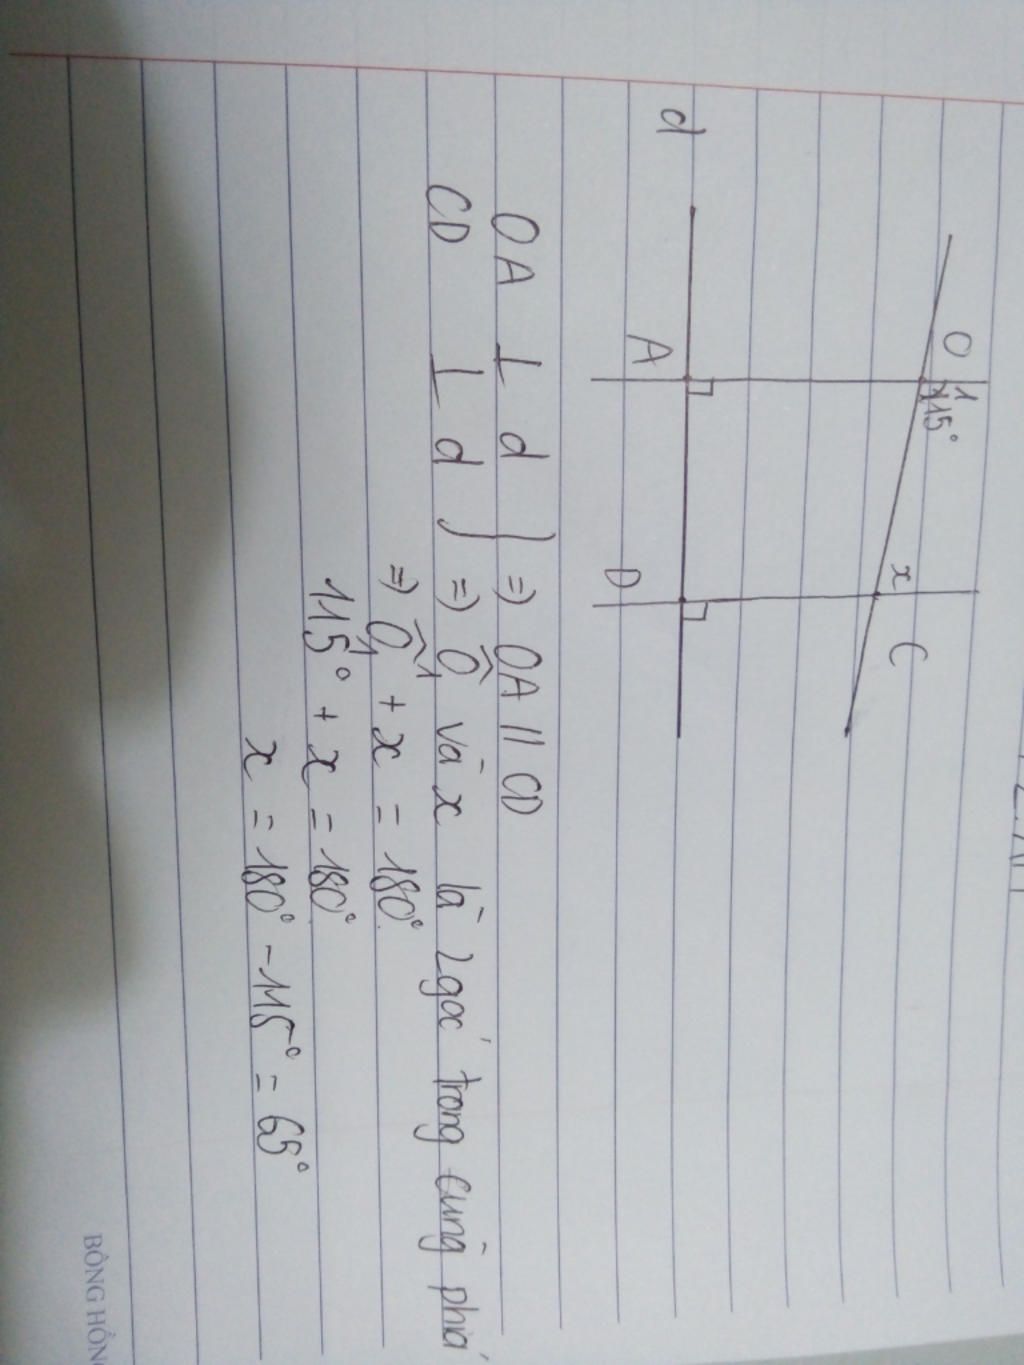 O
1
115°
x
C
A
D
d
OA ⊥ d } => OA // CD
CD ⊥ d => Ô và x là 2 góc trong cùng phía
=> Ô₁ + x = 180°
115° + x = 180°
x = 180° - 115° = 65°
BÔNG HỒNG